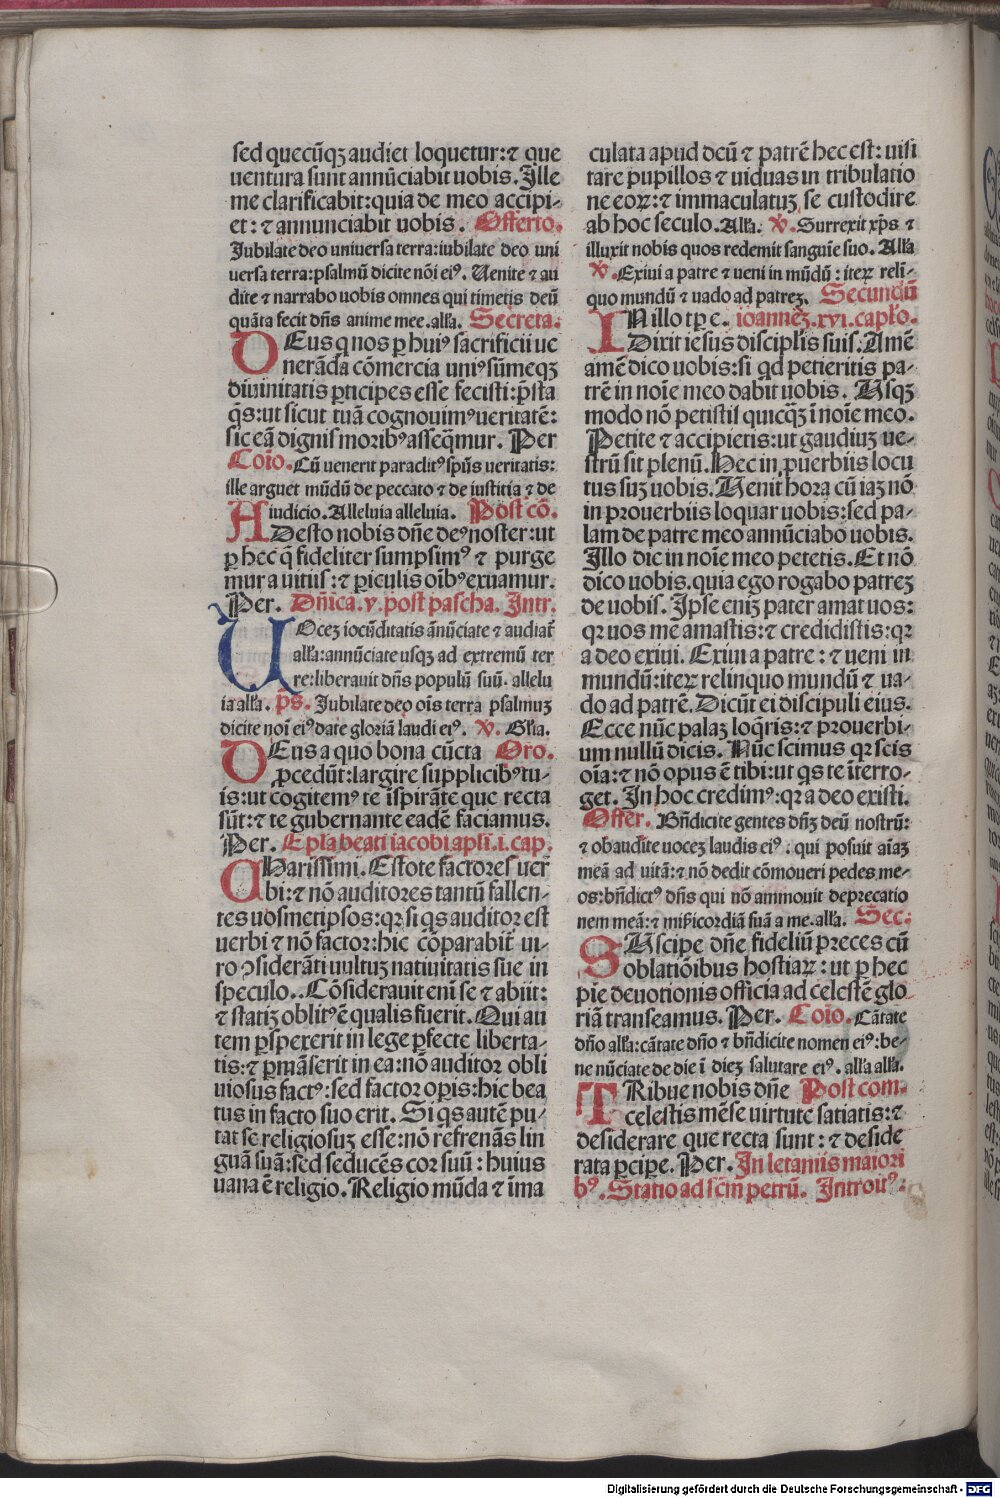 sed quecũqꝫ audiet loquetur: ⁊ que
uentura sunt annũciabit uobis. Ille
me clarificabit: quia de meo accipi-
et: ⁊ annunciabit uobis. Offerto.
Jubilate deo uniuersa terra: iubilate deo uni
uersa terra: psalmũ dicite nõi eiꝰ. Uenite ⁊ au
dite ⁊ narrabo uobis omnes qui timetis deũ
quãta fecit dñs anime mee. allʼa. Secreta.
DEus q nos ꝑ huiꝰ sacrificii ue
nerãda cõmercia uniꝰ sũmeqꝫ
diuinitatis ꝑticipes esse fecisti: p̃sta
q̃s: ut sicut tuã cognouimꝰ ueritatẽ:
sic eã dignis moribꝰ asseq̃mur. Per
Coĩo. Cũ uenerit paraclitꝰ spũs ueritatis:
ille arguet mũdũ de peccato ⁊ de iustitia ⁊ de
iudicio. Alleluia alleluia. Post cõ.
ADesto nobis dñe deꝰ noster: ut
ꝑ hec q̃ fideliter sumpsimꝰ ⁊ purge
mur a uitiis: ⁊ ꝑiculis oĩbꝰ exuamur.
Per. Dñica. v. post pascha. Intr.
UOceꝫ iocũditatis ãnũciate ⁊ audiat̃
allʼa: annũciate usqꝫ ad extremũ ter
re: liberauit dñs populũ suũ. allelu
ia allʼa. p̃s. Jubilate deo oĩs terra psalmuꝫ
dicite noĩ eiꝰ date gloriã laudi eiꝰ. ℣. Glʼia.
DEus a quo bona cũcta Oro.
ꝓcedũt: largire supplicibꝰ tu-
is: ut cogitemꝰ te ĩspirãte que recta
sũt: ⁊ te gubernante eadẽ faciamus.
Per. Eplʼa beati iacobi aplʼi. i. cap.
CHarissimi. Estote factores uer
bi: ⁊ nõ auditores tantũ fallen-
tes uosmetipsos: qꝛ si q̃s auditor est
uerbi ⁊ nõ factor: hic cõparabit̃ ui-
ro ꝯsiderãti uultuꝫ natiuitatis sue in
speculo.. Cõsiderauit enĩ se ⁊ abiit:
⁊ statiꝫ oblitꝰ ẽ qualis fuerit. Qui au
tem ꝑspexerit in lege ꝑfecte liberta-
tis: ⁊ ꝑmãserit in ea: nõ auditor obli
uiosus factꝰ: sed factor oꝑis: hic bea
tus in facto suo erit. Si q̃s autẽ pu-
tat se religiosuꝫ esse: nõ refrenãs lin
guã suã: sed seducẽs cor suũ: huius
uana ẽ religio. Religio mũda ⁊ ĩma
culata apud deũ ⁊ patrẽ hec est: uisi
tare pupillos ⁊ uiduas in tribulatio
ne eoꝝ: ⁊ immaculatuꝫ se custodire
ab hoc seculo. Allʼa. ℣. Surrexit xp̃s ⁊
illuxit nobis quos redemit sanguĩe suo. Allʼa
℣. Exiui a patre ⁊ ueni in mũdũ: iteꝝ relĩ-
quo mundũ ⁊ uado ad patreꝫ. Secundũ
IN illo tꝑe. ioanneꝫ. xvi. caplʼo.
Dixit iesus disciplʼis suis. Amẽ
amẽ dico uobis: si qd petieritis pa-
trẽ in noĩe meo dabit uobis. Usqꝫ
modo nõ petistis quicq̃ꝫ ĩ noĩe meo.
Petite ⁊ accipietis: ut gaudiuꝫ ue-
strũ sit plenũ. Hec in ꝓuerbiis locu
tus suꝫ uobis. Uenit hora cũ iaꝫ nõ
in prouerbiis loquar uobis: sed pa-
lam de patre meo annũciabo uobis.
Illo die in noĩe meo petetis. Et nõ
dico uobis. quia ego rogabo patreꝫ
de uobis. Ipse eniꝫ pater amat uos:
qꝛ uos me amastis: ⁊ credidistis: qꝛ
a deo exiui. Exiui a patre: ⁊ ueni in
mundũ: iteꝝ relinquo mundũ ⁊ ua-
do ad patrẽ. Dicũt ei discipuli eius.
Ecce nũc palaꝫ loq̃ris: ⁊ prouerbi-
um nullũ dicis. Nũc scimus qꝛ scis
oĩa: ⁊ nõ opus ẽ tibi: ut q̃s te ĩterro-
get. In hoc credimꝰ: qꝛ a deo existi.
Offer. Bñdicite gentes dñꝫ deũ nostrũ:
⁊ obaudite uoceꝫ laudis eiꝰ: qui posuit aĩaꝫ
meã ad uitã: ⁊ nõ dedit cõmoueri pedes me-
os: bñdictꝰ dñs qui nõ ammouit deprecatio
nem meã: ⁊ misʼicordiã suã a me. allʼa. Sec:
SUscipe dñe fideliũ preces cũ
oblatiõibus hostiaꝝ: ut ꝑ hec
pie deuotionis officia ad celestẽ glo
riã transeamus. Per. Coĩo. Cãtate
dño allʼa: cãtate dño ⁊ bñdicite nomen eiꝰ: be-
ne nũciate de die ĩ dieꝫ salutare eiꝰ. allʼa allʼa.
TRibue nobis dñe Post com.
celestis mẽse uirtute satiatis: ⁊
desiderare que recta sunt: ⁊ deside
rata ꝑcipe. Per. In letaniis maiori
bꝰ. Statio ad sc̃m petrũ. Introitꝰ:
Digitalisierung gefördert durch die Deutsche Forschungsgemeinschaft - DFG